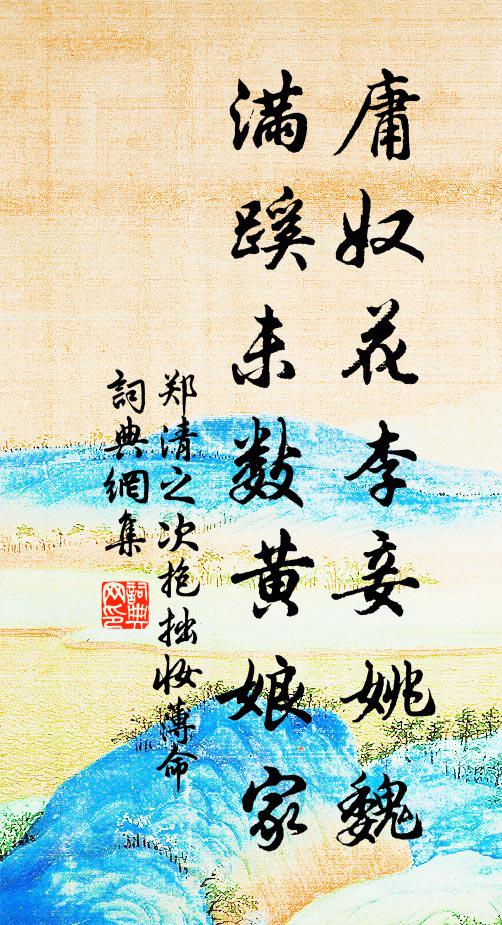 庸奴花李妾姚魏
满蹊未数黄娘家
郑清之次抱拙妆薄命
詞典網集
詞典网印